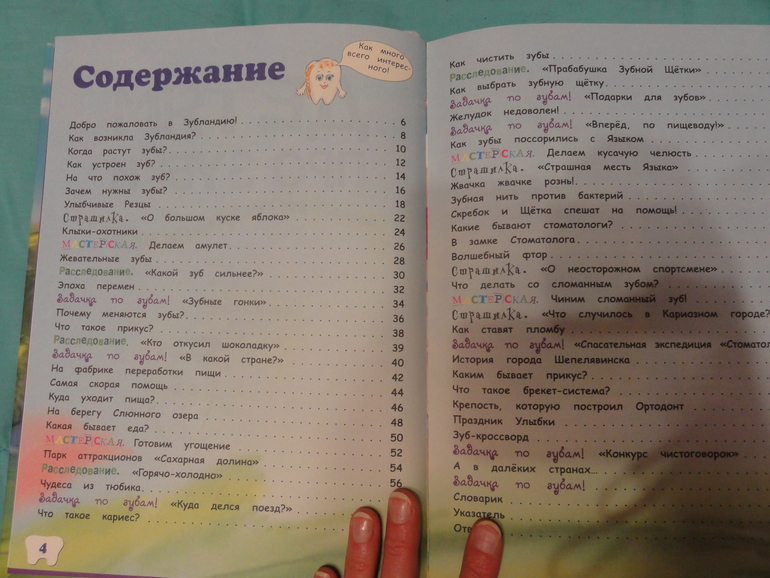 Содержание
Как много
всего интерес-
ного!
Добро пожаловать в Зубландию! 6
Как возникла Зубландия? 8
Когда растут зубы? 10
Как устроен зуб? 12
На что похож зуб? 14
Зачем нужны зубы? 16
Улыбчивые Резцы 18
Страшилка. «О большом куске яблока» 22
Клыки-охотники 24
МАСТЕРСКАЯ. Делаем амулет 26
Жевательные зубы 28
Расследование. «Какой зуб сильнее?» 30
Эпоха перемен 32
Задачка по зубам! «Зубные гонки» 34
Почему меняются зубы? 36
Что такое прикус? 38
Расследование. «Кто откусил шоколадку» 39
Задачка по зубам! «В какой стране?» 40
На фабрике переработки пищи 42
Самая скорая помощь 44
Куда уходит пища? 46
На берегу Слюнного озера 48
Какая бывает еда? 50
МАСТЕРСКАЯ. Готовим угощение 52
Парк аттракционов «Сахарная долина» 54
Расследование. «Горячо-холодно» 56
Чудеса из тюбика
Задачка по зубам! «Куда делся поезд?»
Что такое кариес?
4
Как чистить зубы
Расследование. «Прабабушка Зубной Щётки»
Как выбрать зубную щётку
Задачка по зубам! «Подарки для зубов»
Желудок недоволен!
Задачка по зубам! «Вперёд, по пищеводу!»
Как зубы поссорились с Языком
МАСТЕРСКАЯ. Делаем кусачую челюсть
Страшилка. «Страшная месть Языка»
Жвачка жвачке рознь!
Зубная нить против бактерий
Скребок и Щётка спешат на помощь!
Какие бывают стоматологи?
В замке Стоматолога
Волшебный фтор
Страшилка. «О неосторожном спортсмене»
Что делать со сломанным зубом?
МАСТЕРСКАЯ. Чиним сломанный зуб!
Страшилка. «Что случилось в Кариозном городе?
Как ставят пломбу
Задачка по зубам! «Спасательная экспедиция «Стоматол
История города Шепелявинска
Каким бывает прикус?
Что такое брекет-система?
Крепость, которую построил Ортодонт
Праздник Улыбки
Зуб-кроссворд
Задачка по зубам! «Конкурс чистоговорок»
А в далёких странах...
Задачка по зубам!
Словарик
Указатель